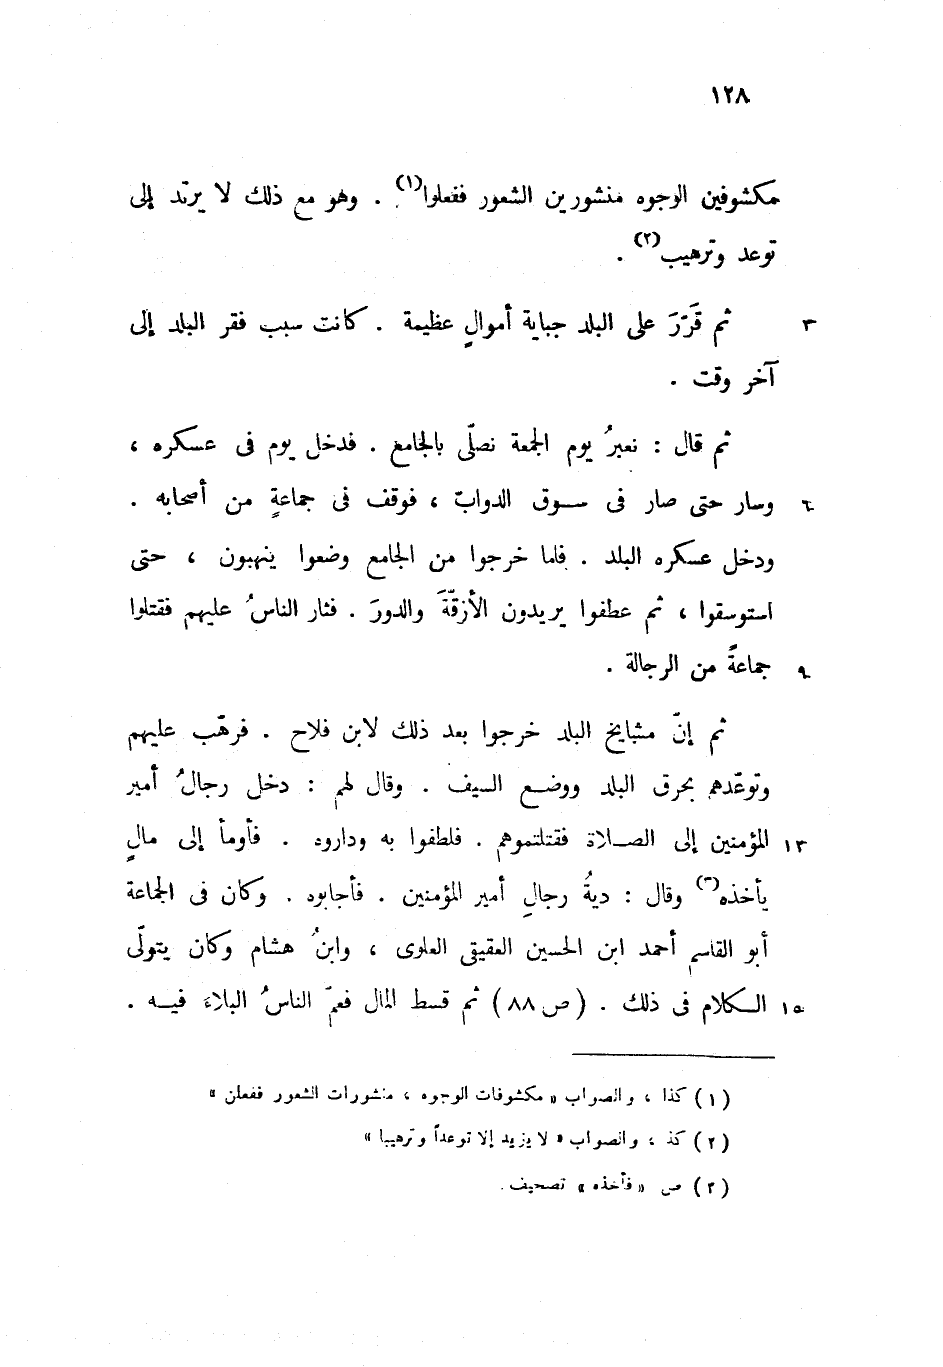 ١٢٨
مكشوفين الوجوه منشورين الشعور ففعلوا(١) . وهو مع ذلك لا يرتد إلى
توعد وترهيب(٢) .
٣ ثم قَرّرَ على البلد جباية أموالٍ عظيمة . كانت سبب فقر البلد إلى
آخر وقت .
ثم قال : نعبرُ يوم الجمعة نصلّى بالجامع . فدخل يوم فى عسكره ،
٦ وسار حتى صار فى سوق الدوابّ ، فوقف فى جماعةٍ من أصحابه .
ودخل عسكره البلد . فلما خرجوا من الجامع وضعوا ينهبون ، حتى
استوسقوا ، ثم عطفوا يريدون الأزقّةَ والدورَ . فثار الناسُ عليهم فقتلوا
٩ جماعةً من الرجالة .
ثم إنّ مشايخ البلد خرجوا بعد ذلك لابن فلاح . فرهّب عليهم
وتوعّدهم بحرق البلد ووضع السيف . وقال لهم : دخل رجالُ أمير
١٢ المؤمنين إلى الصلاة فقتلتموهم . فلطفوا به وداروه . فأومأ إلى مالٍ
يأخذه(٣) وقال : ديةُ رجالِ أمير المؤمنين . فأجابوه . وكان فى الجماعة
أبو القاسم أحمد ابن الحسين العقيقى العلوى ، وابنُ هشام وكان يتولّى
١٥ الكلام فى ذلك . (ص ٨٨) ثم قسط المال فعمّ الناسُ البلاءَ فيه .
(١) كذا ، والصواب « مكشوفات الوجوه ، منشورات الشعور ففعلن »
(٢) كذ ، والصواب « لا يزيد إلا توعداً وترهيبا »
(٣) ص « فأخذه » تصحيف.